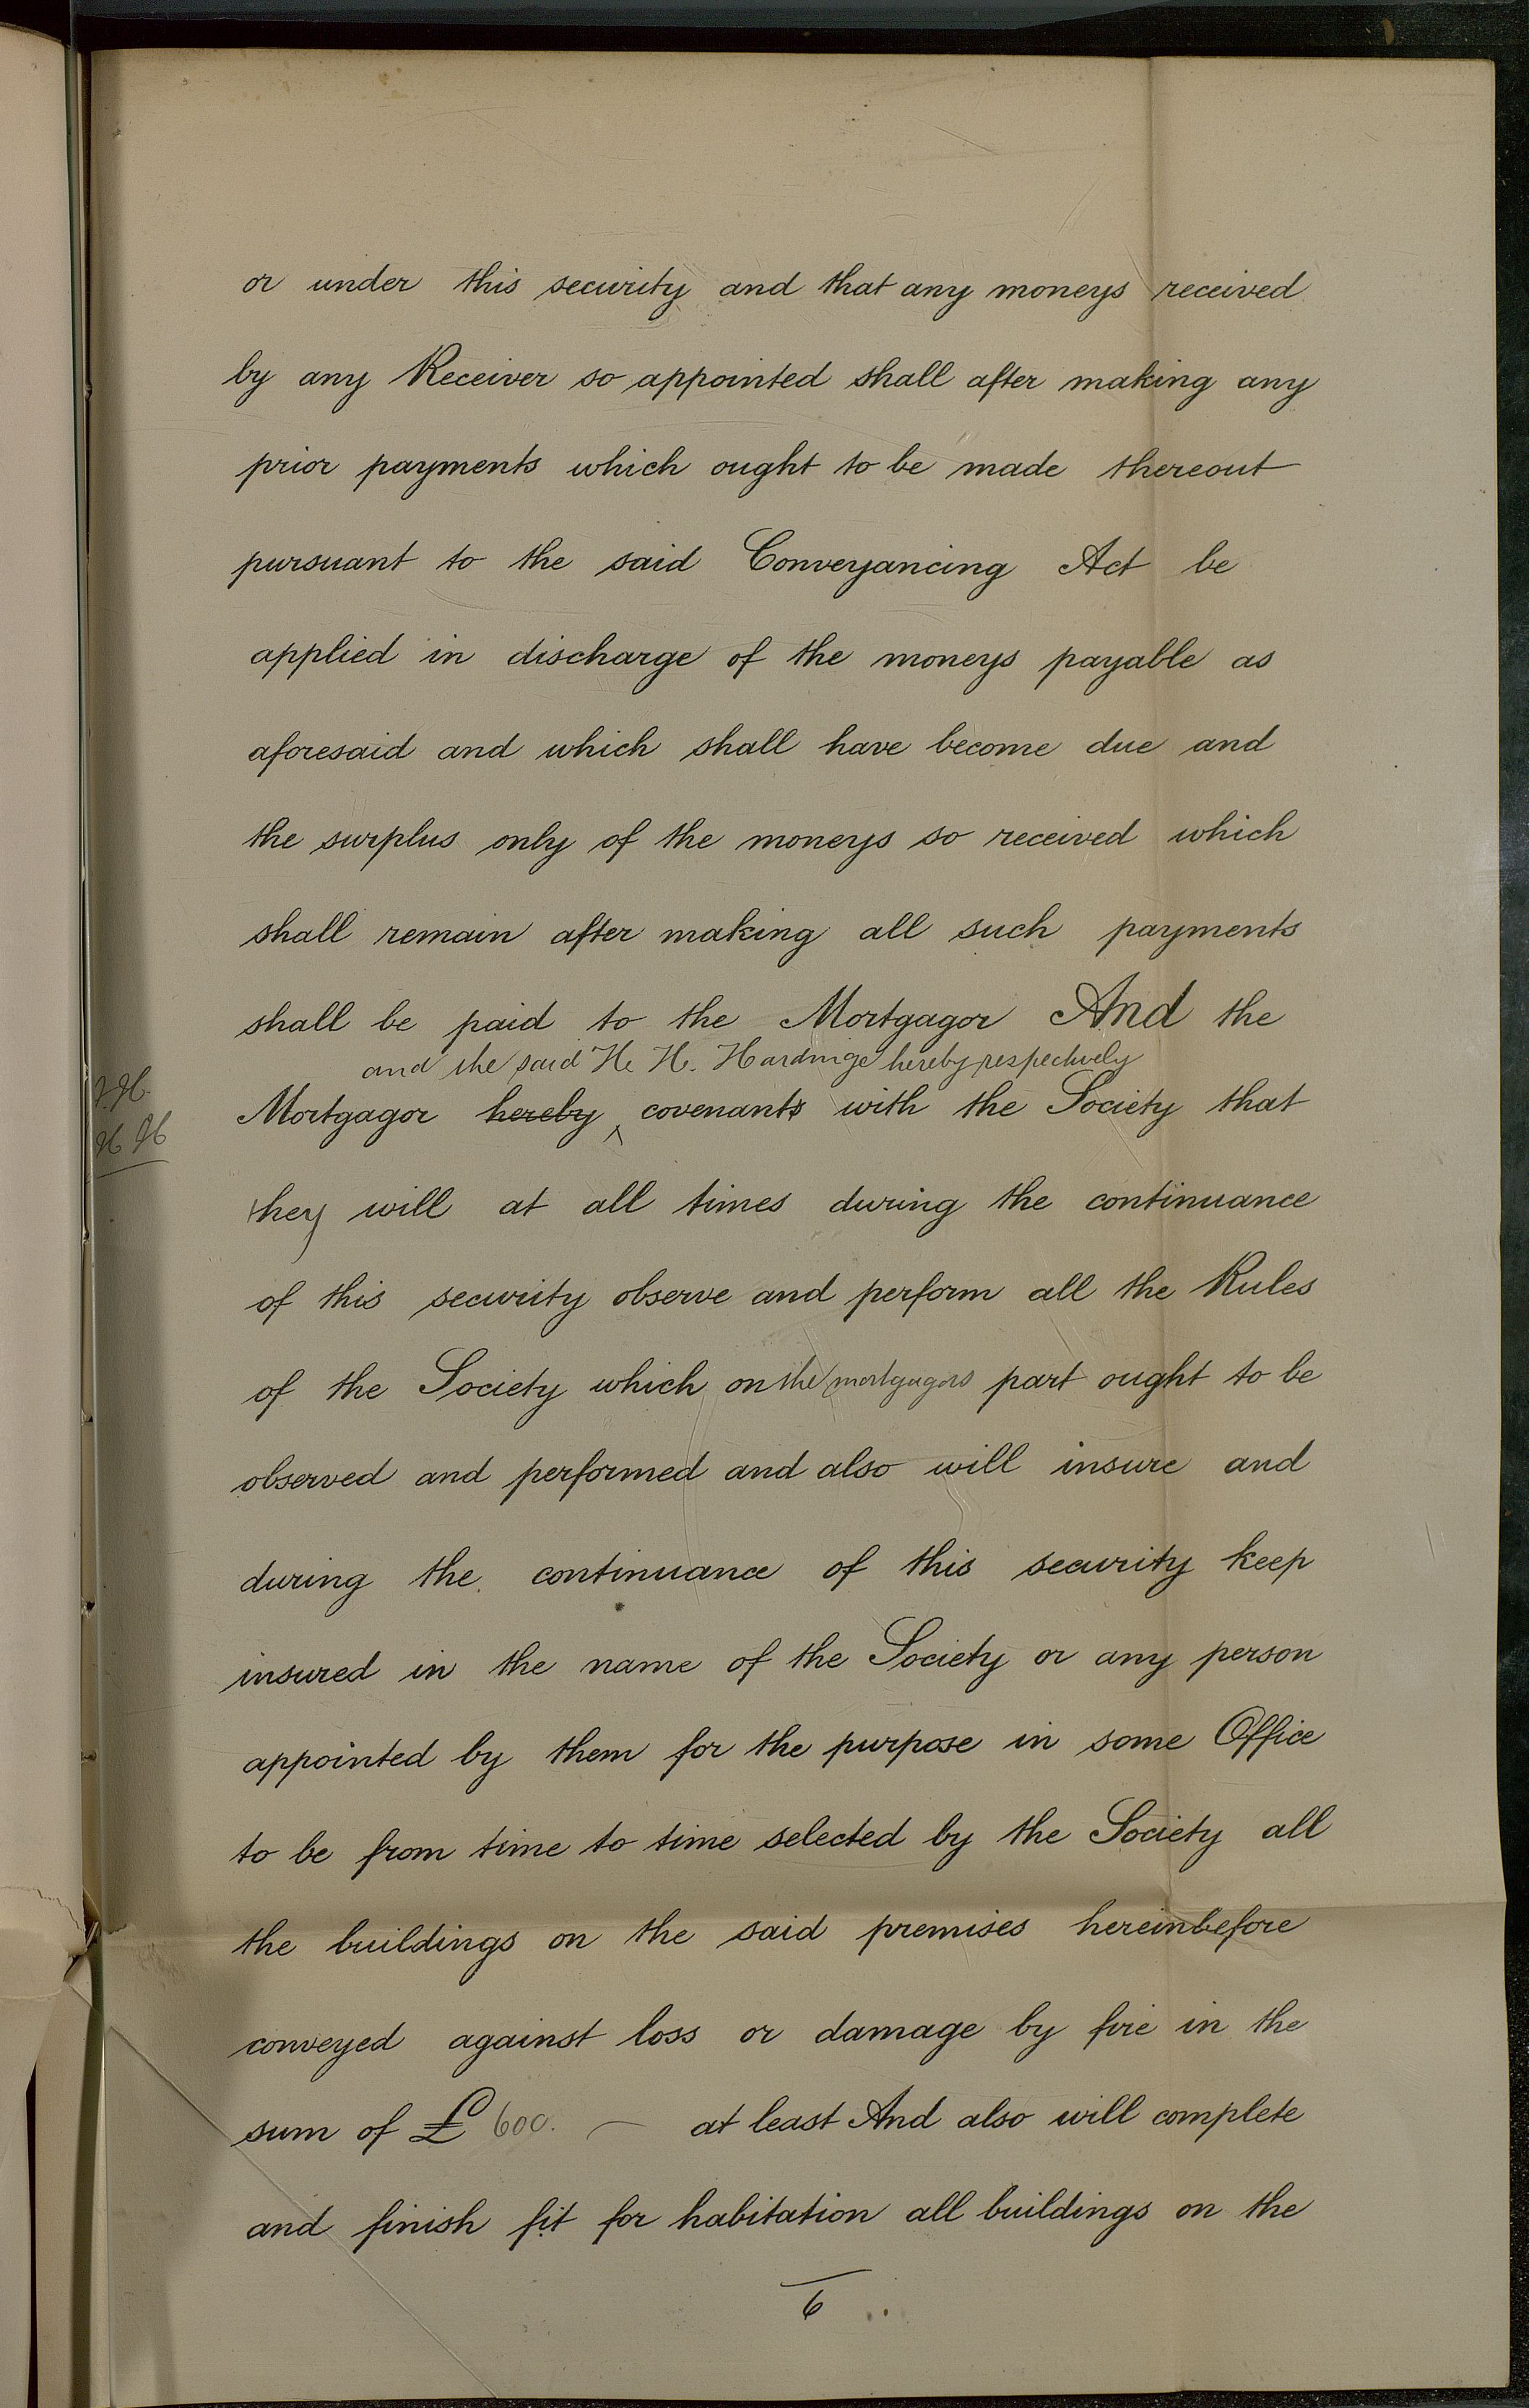 or under this security and that any moneys received
by any Receiver so appointed shall after making any
prior payments which ought to be made thereout
pursuant to the said Conveyancing Act be
applied in discharge of the moneys payable as
aforesaid and which shall have become due and
the surplus only of the moneys so received which
shall remain after making all such payments
shall be paid to the Mortgagor And the
and the said H. H. Hardinge hereby respectively
Mortgagor hereby covenants with the Society that
H H
they will at all times during the continuance
of this security observe and perform all the Rules
of the Society which on the mortgagors part ought to be
observed and performed and also will insure and
during the continuance of this security keep
insured in the name of the Society or any person
appointed by them for the purpose in some Office
to be from time to time selected by the Society all
the buildings on the said premises hereinbefore
conveyed against loss or damage by fire in the
sum of £ 600. — at least And also will complete
and finish fit for habitation all buildings on the
6